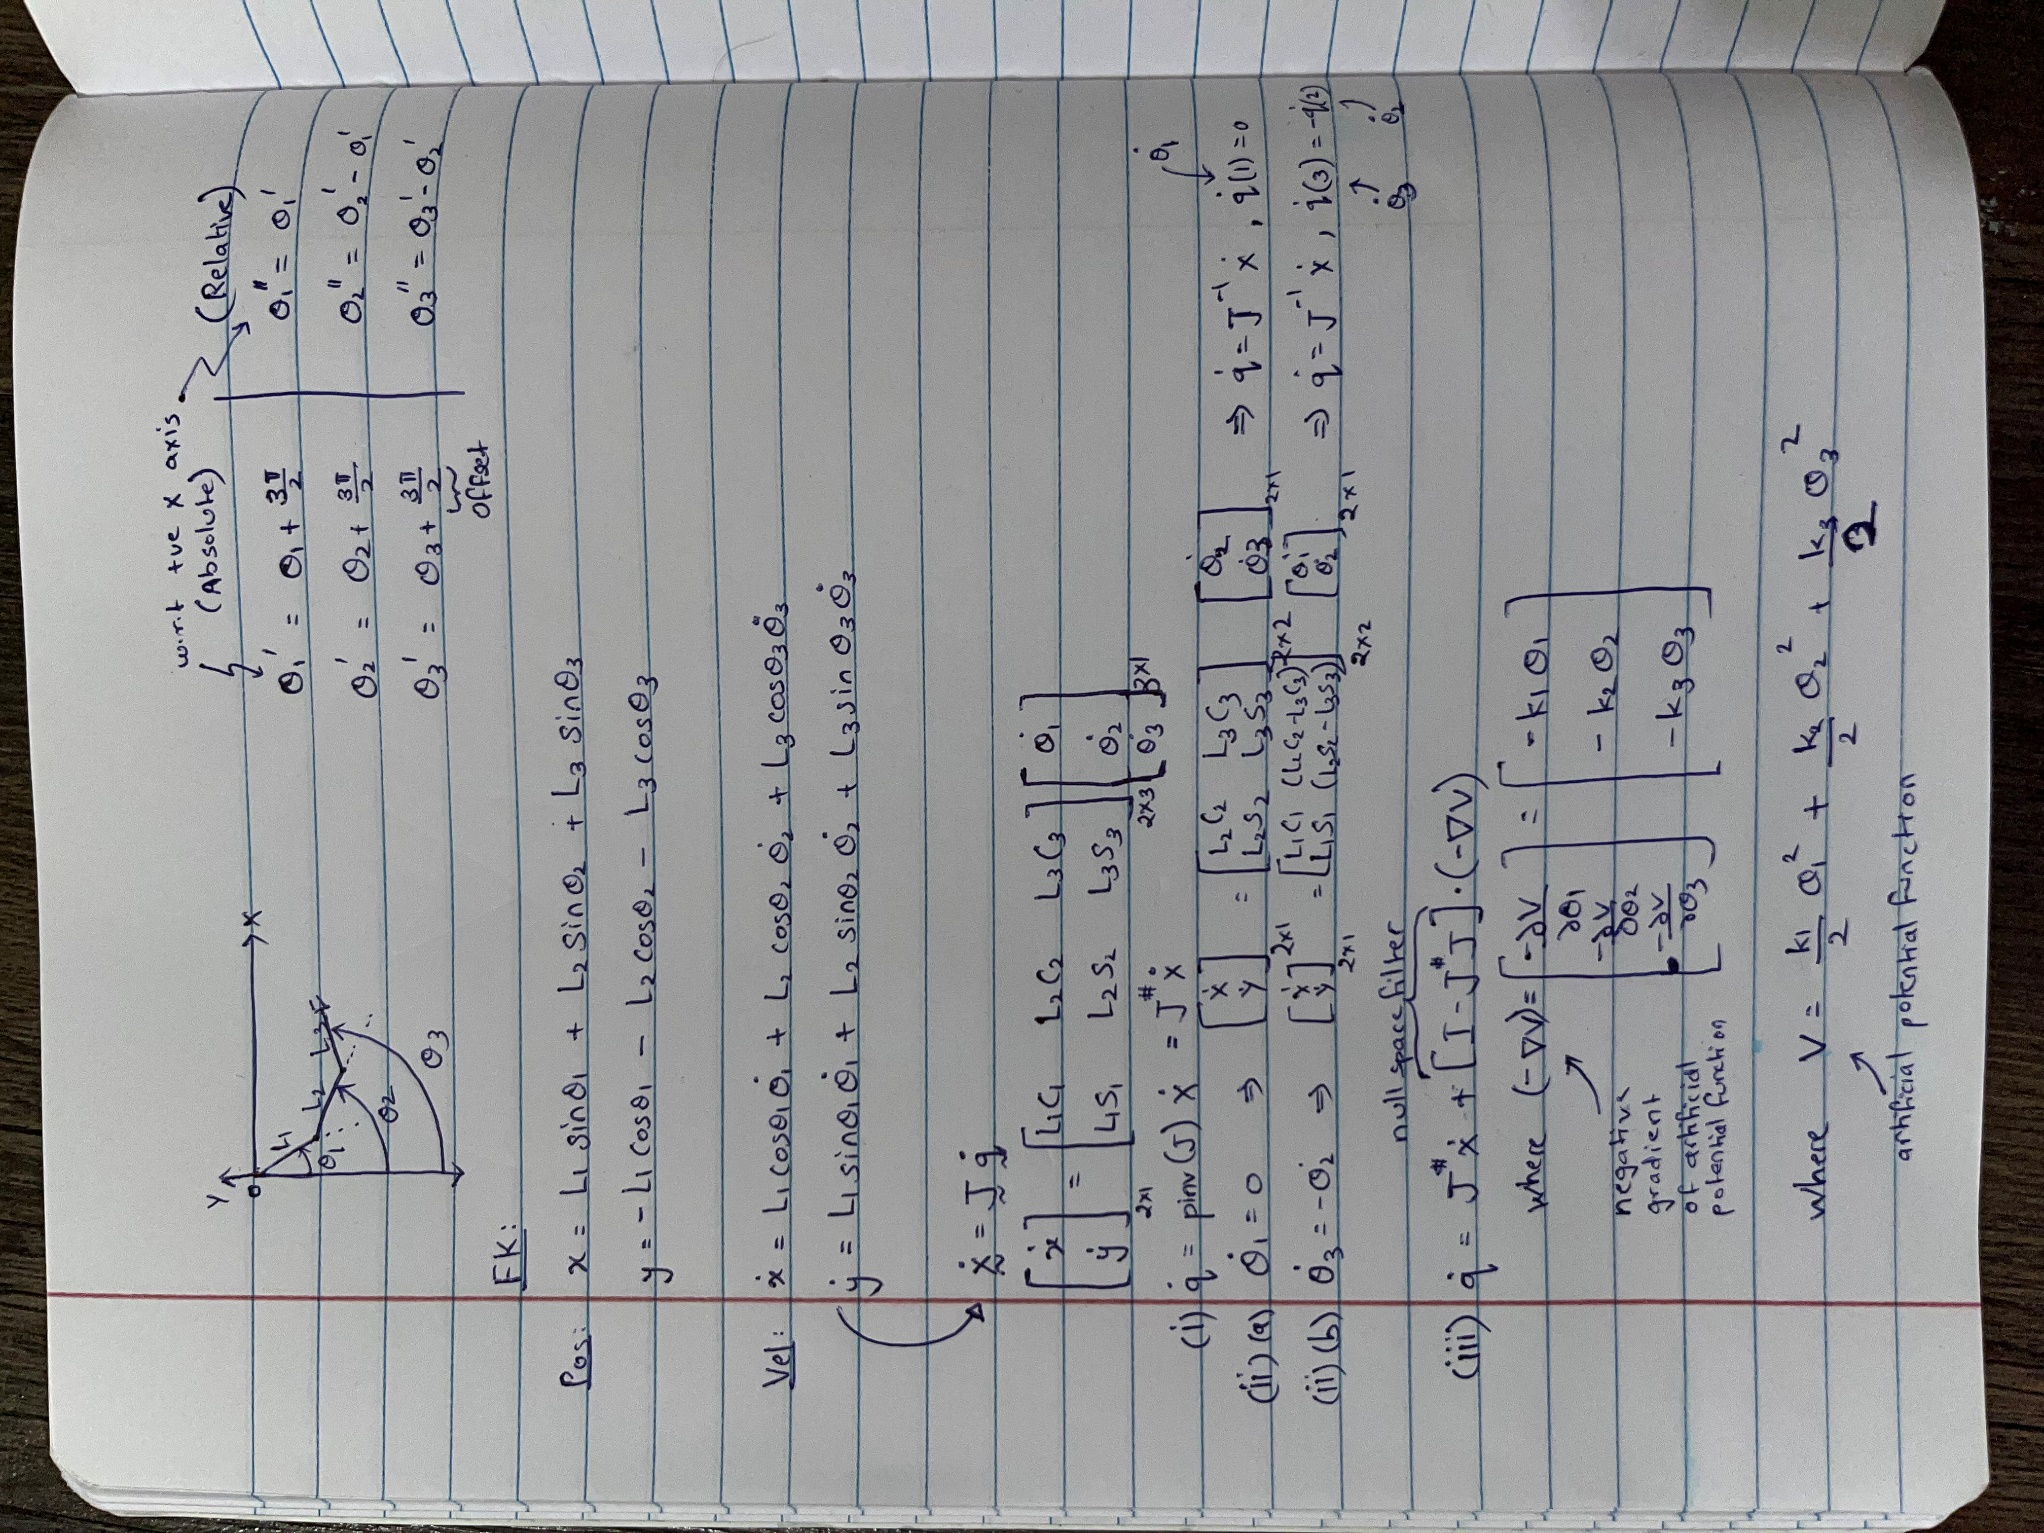 w.r.t +ve x axis
(Absolute) (Relative)
θ₁' = θ₁ + 3π/2 θ₁'' = θ₁'
θ₂' = θ₂ + 3π/2 θ₂'' = θ₂' - θ₁'
θ₃' = θ₃ + 3π/2 θ₃'' = θ₃' - θ₂'
offset
Y
O
X
L₁
L₂
L₃
θ₁
θ₂
θ₃
FK:
Pos: x = L₁ sinθ₁ + L₂ sinθ₂ + L₃ sinθ₃
y = - L₁ cosθ₁ - L₂ cosθ₂ - L₃ cosθ₃
Vel: ẋ = L₁ cosθ₁ θ̇₁ + L₂ cosθ₂ θ̇₂ + L₃ cosθ₃ θ̇₃
ẏ = L₁ sinθ₁ θ̇₁ + L₂ sinθ₂ θ̇₂ + L₃ sinθ₃ θ̇₃
ẋ = J q̇
[ẋ ẏ]2x1 = [L₁C₁ L₂C₂ L₃C₃
L₁S₁ L₂S₂ L₃S₃]2x3 [θ̇₁ θ̇₂ θ̇₃]3x1
(i) q̇ = pinv(J) ẋ = J# ẋ
(ii)(a) θ̇₁ = 0 ⇒ [ẋ ẏ]2x1 = [L₂C₂ L₃C₃
L₂S₂ L₃S₃]2x2 [θ̇₂ θ̇₃]2x1 ⇒ q̇ = J⁻¹ ẋ, q̇(1) = 0
θ̇₁
(ii)(b) θ̇₃ = -θ̇₂ ⇒ [ẋ ẏ]2x1 = [L₁C₁ (L₂C₂-L₃C₃)
L₁S₁ (L₂S₂-L₃S₃)]2x2 [θ̇₁ θ̇₂]2x1 ⇒ q̇ = J⁻¹ ẋ, q̇(3) = -q̇(2)
θ̇₃ θ̇₂
null space filter
(iii) q̇ = J# ẋ + [I - J# J] · (-∇V)
where (-∇V) = [-∂V/∂θ₁ -∂V/∂θ₂ -∂V/∂θ₃] = [-k₁θ₁ -k₂θ₂ -k₃θ₃]
negative
gradient
of artificial
potential function
where V = k₁/2 θ₁² + k₂/2 θ₂² + k₃/2 θ₃²
artificial potential function